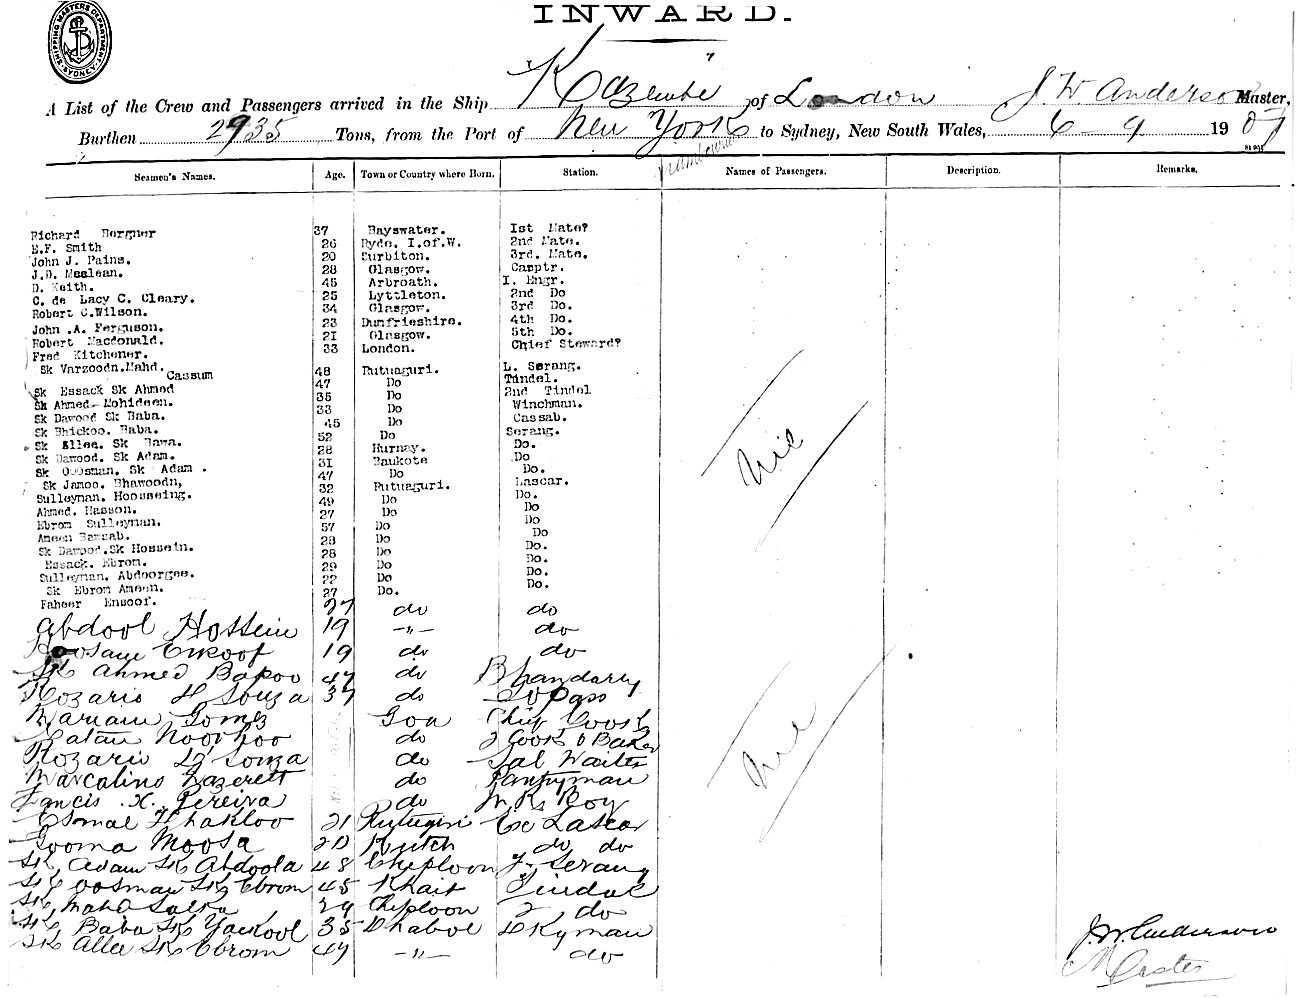 INWARD.
SHIPPING MASTERS DEPARTMENT SYDNEY
A List of the Crew and Passengers arrived in the Ship Kazembe of London J. W. Anderson Master,
Burthen 2935 Tons, from the Port of New York to Sydney, New South Wales, 6 - 9 1907
Seamen's Names. Age. Town or Country where Born. Station. Names of Passengers. Description. Remarks.
Richard Bergner 37 Bayswater. 1st Mate?
E.F. Smith 26 Ryde. I.of.W. 2nd Mate.
John J. Pains. 20 Surbiton. 3rd. Mate.
J.D. Maclean. 28 Glasgow. Carptr.
D. Keith. 45 Arbroath. I. Engr.
C. de Lacy C. Cleary. 25 Lyttleton. 2nd Do
Robert C.Wilson. 34 Glasgow. 3rd Do.
John .A. Ferguson. 23 Dumfrieshire. 4th Do.
Robert Macdonald. 21 Glasgow. 5th Do.
Fred Kitchener. 33 London. Chief Steward?
Sk Varzoodn.Mahd. Cassum 48 Rutuaguri. L. Serang.
Sk Essack Sk Ahmed 47 Do Tindel.
Sk Ahmed Mohideen. 35 Do 2nd Tindel
Sk Dawood Sk Baba. 33 Do Winchman.
Sk Bhickoo. Baba. 45 Do Cassab.
Sk Ellee. Sk Bawa. 52 Do Serang.
Sk Dawood. Sk Adam. 28 Hurnay. Do.
Sk Oosman. Sk Adam . 31 Baukote Do
Sk Jamoo. Bhawoodn, 47 Do Do.
Sulleyman. Hoosseing. 32 Rutuaguri. Lascar.
Ahmed. Hasson. 49 Do Do.
Ebrom Sulleyman. 27 Do Do
Ameen Bawsab. 57 Do Do
Sk Dawood.Sk Hossein. 28 Do Do
Essack. Ebrom. 28 Do Do.
Sulleyman. Abdoorgee. 29 Do Do.
Sk Ebrom Ameen. 22 Do Do.
Faheer Ensoof. 27 Do. Do.
27 do do
Abdool Hossein 19 -"- do
Hoosain Esoof 19 do do
Sk Ahmed Bakoo 47 do Bhandary
Rozario D Souza 37 do Topass
Mariam Gomez Goa Chief Cook
Ratan Noorhoo do 2 Cook & Baker
Rozario D'Souza do Sal Waiter
Marcalino Nazerett do Pantryman
Francis .X. Pereira do
Esmal Thakloo 21 Rutugiri Ex Lascar
Gooma Moosa 20 Kutch do do
Sk Adam Sk Abdoola 48 Chiploon F. Serang
Sk Oosman Sk Ebrom 45 Khait Tindal
Sk Mahd Salka 29 Chiploon 2 do
Sk Baba Sk Yackool 35 Dhabol Dkyman
Sk Allee Sk Ebrom 47 -"- do
Nil
Nil
J. W. Anderson
Master